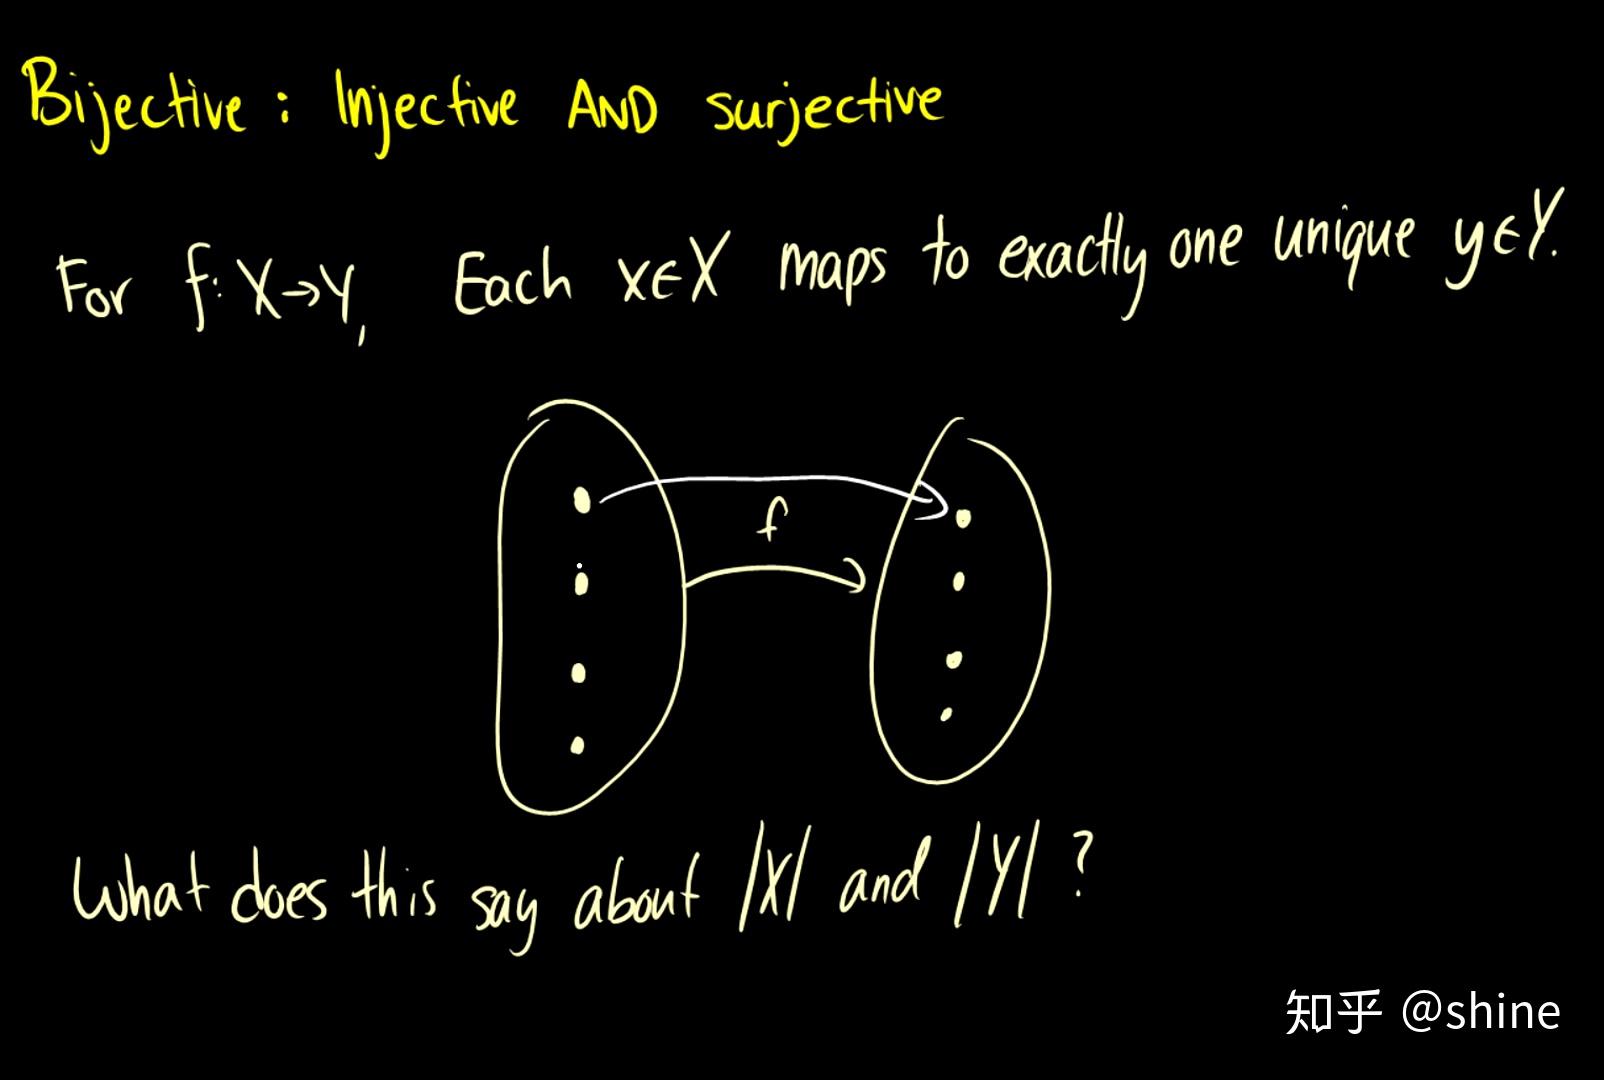 Bijective : Injective AND surjective
For f: X→Y, Each x∈X maps to exactly one unique y∈Y.
f
What does this say about |X| and |Y| ?
知乎 @shine